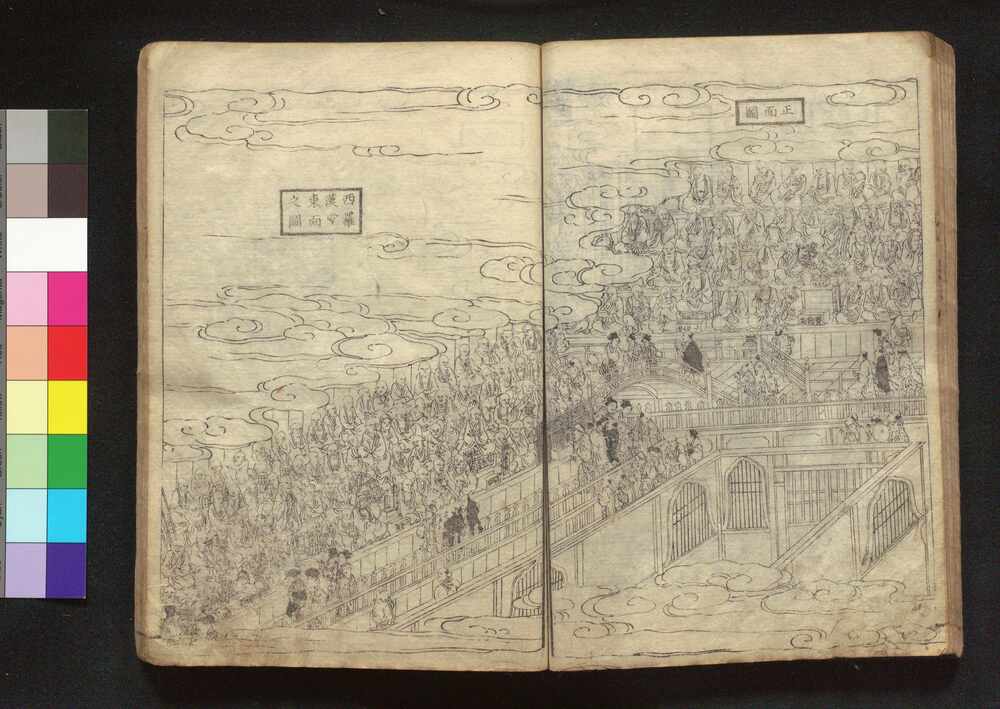 正面圖
西羅
漢堂
東向
之圖